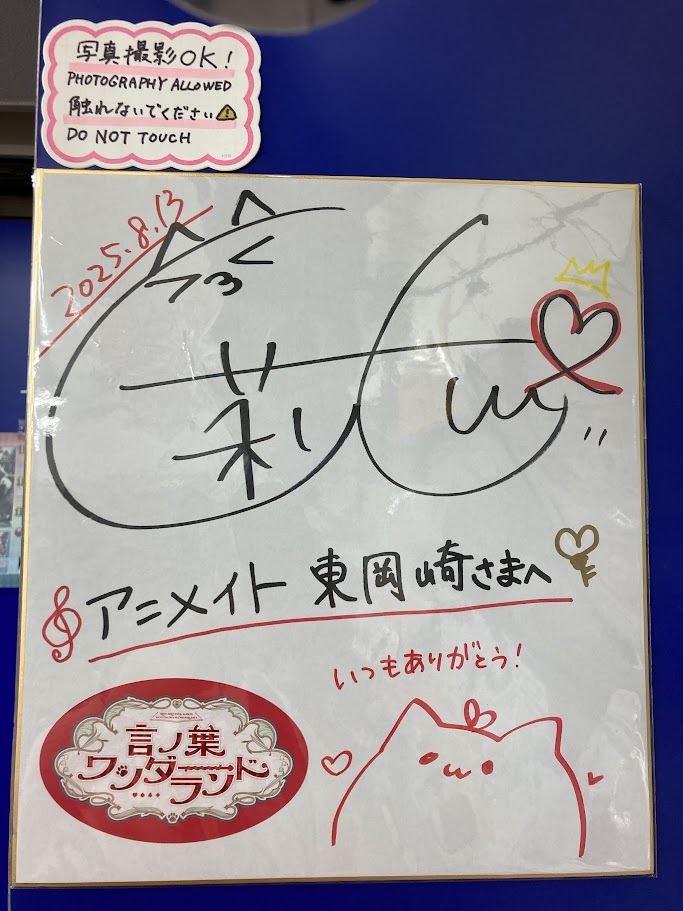 写真撮影OK!
PHOTOGRAPHY ALLOWED
触れないでください
DO NOT TOUCH
2025.8.13
莉
アニメイト 東岡崎さまへ
いつもありがとう!
言ノ葉
ワンダーランド